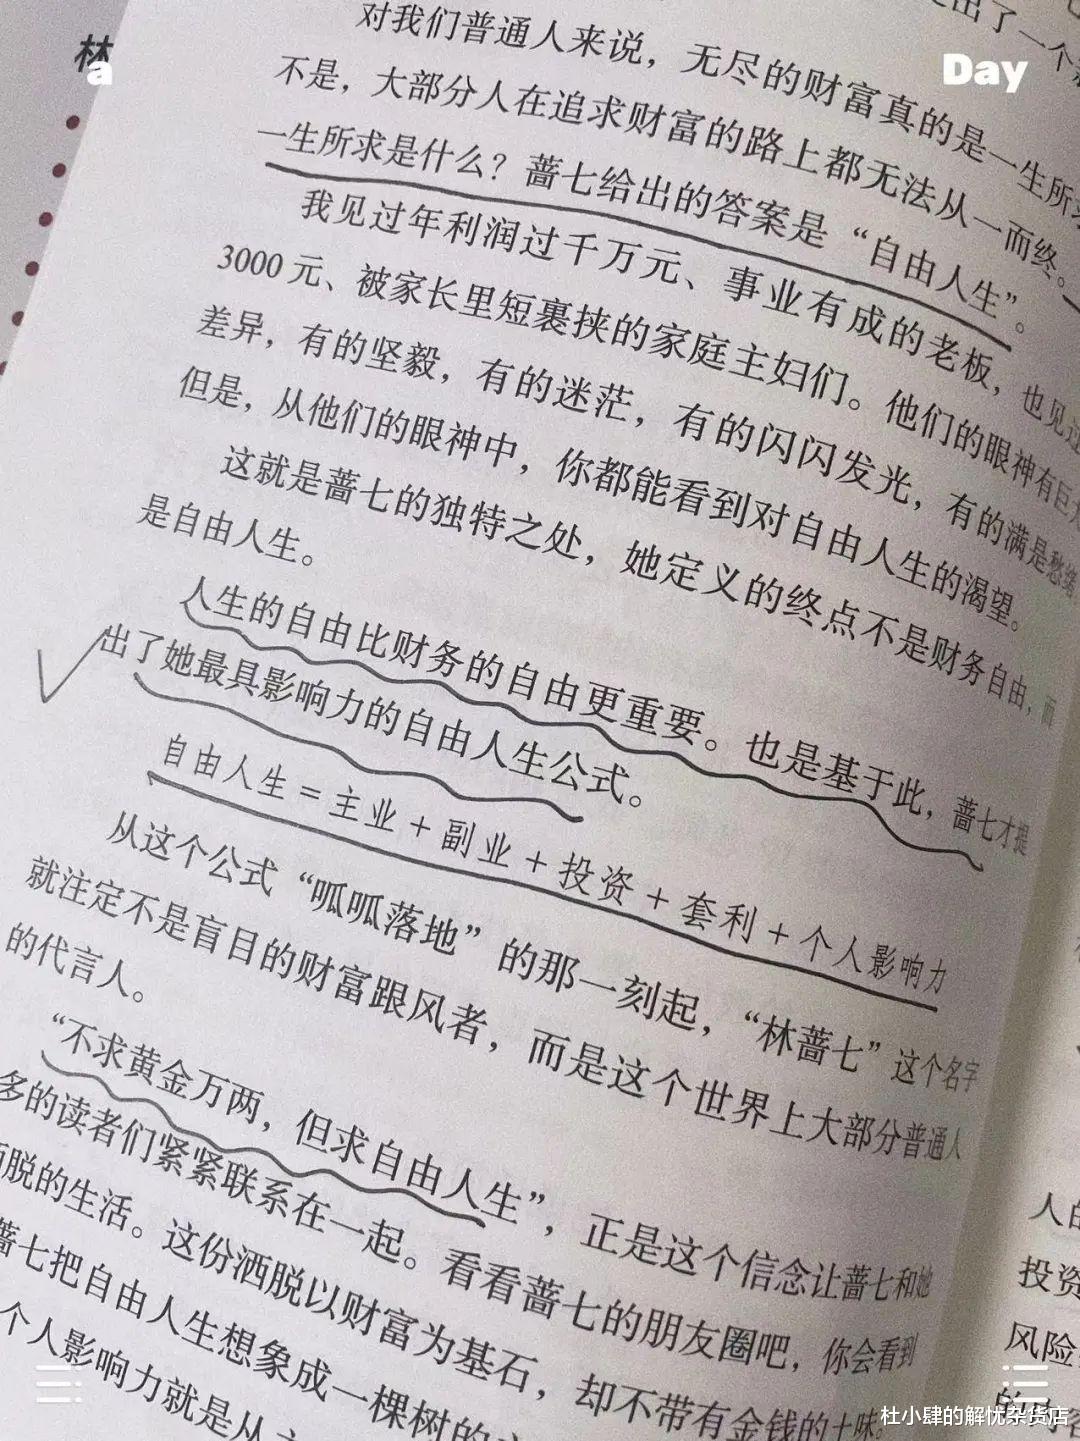 林
a
Day
出了一个
对我们普通人来说，无尽的财富真的是一生所
不是，大部分人在追求财富的路上都无法从一而终。
一生所求是什么？蔷七给出的答案是“自由人生”。
我见过年利润过千万元、事业有成的老板，也见过
3000元、被家长里短裹挟的家庭主妇们。他们的眼神有巨
差异，有的坚毅，有的迷茫，有的闪闪发光，有的满是愁绪
但是，从他们的眼神中，你都能看到对自由人生的渴望。
这就是蔷七的独特之处，她定义的终点不是财务自由，而
是自由人生。
人生的自由比财务的自由更重要。也是基于此，蔷七才提
出了她最具影响力的自由人生公式。
自由人生=主业+副业+投资+套利+个人影响力
从这个公式“呱呱落地”的那一刻起，“林蔷七”这个名字
就注定不是盲目的财富跟风者，而是这个世界上大部分普通人
的代言人。
“不求黄金万两，但求自由人生”，正是这个信念让蔷七和她
多的读者们紧紧联系在一起。看看蔷七的朋友圈吧，你会看到
脱的生活。这份洒脱以财富为基石，却不带有金钱的土味。
蔷七把自由人生想象成一棵树的
个人影响力就是从
人的
投资
风险
的
杜小肆的解忧杂货店